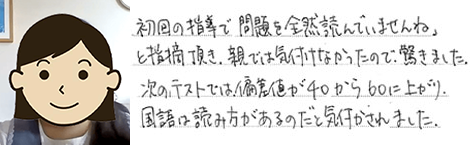 初回の指導で問題を全然読んでいませんね」
と指摘頂き、親では気付けなかったので、驚きました。
次のテストでは偏差値が40から60に上がり、
国語は読み方があるのだと気付かされました。